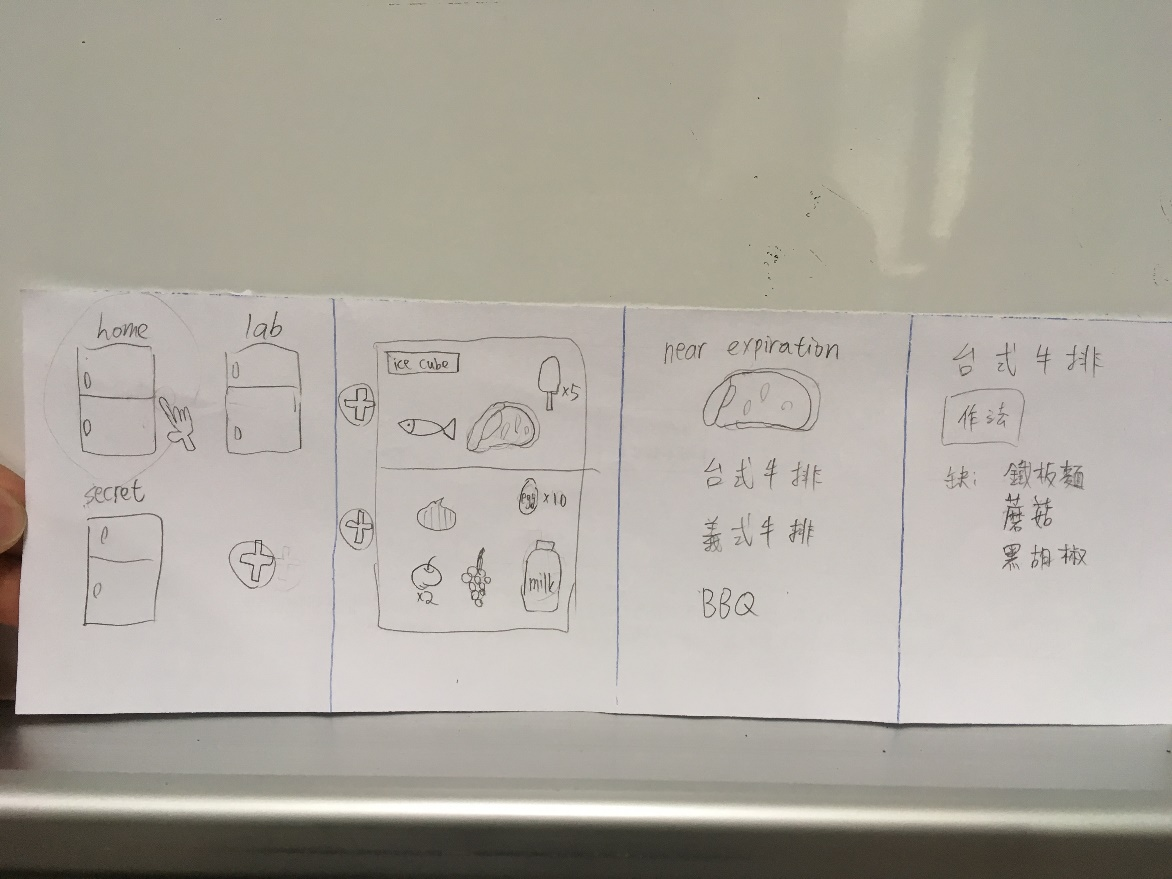 home
lab
secret
ice cube
x5
egg x10
x2
milk
near expiration
台式牛排
義式牛排
BBQ
台式牛排
作法
缺: 鐵板麵
蘑菇
黑胡椒